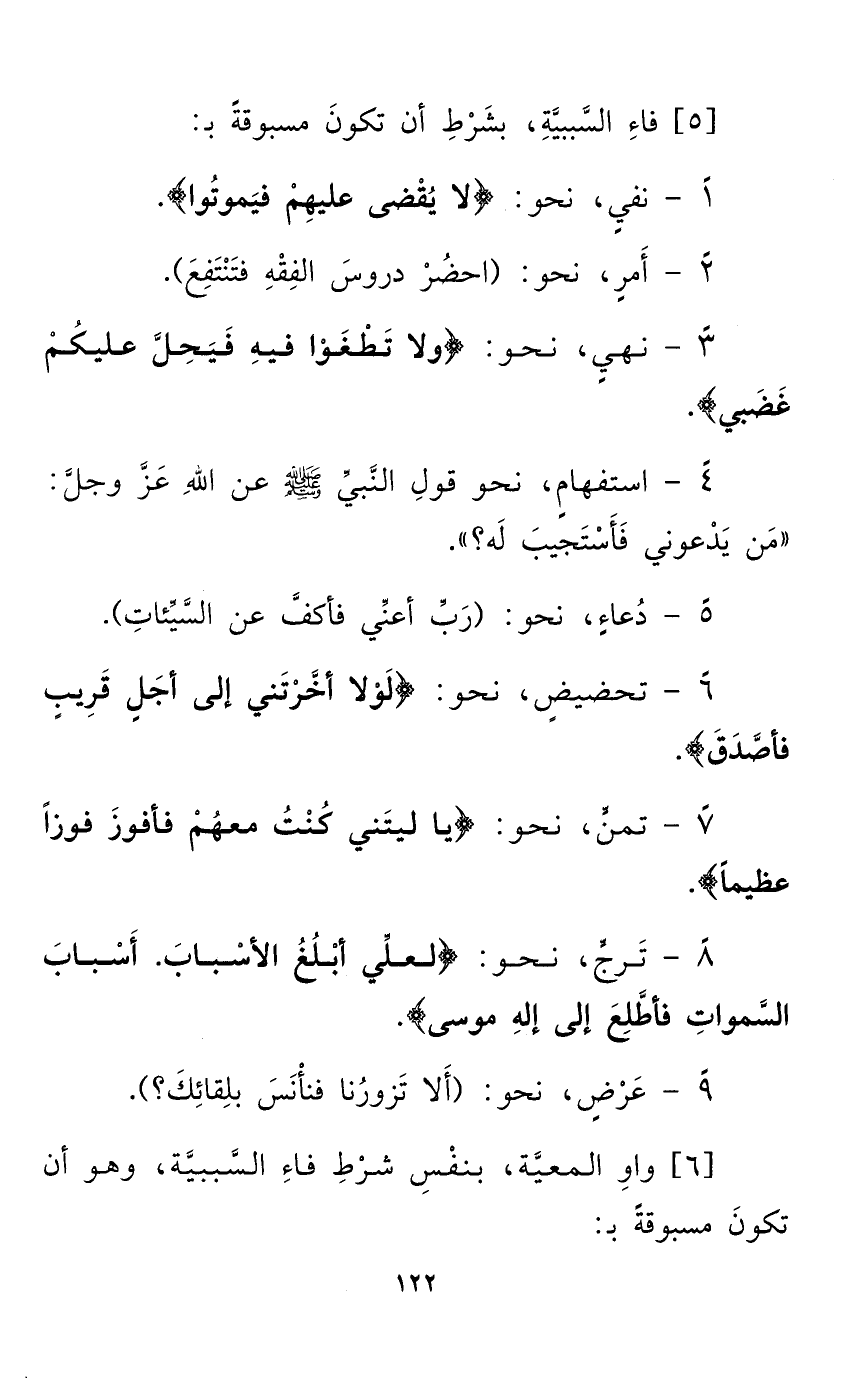 [٥] فاءِ السَّببيَّةِ، بشَرْطِ أن تكونَ مسبوقةً بـ:
١ً - نفيٍ، نحو: ﴿لا يُقْضى عليهِمْ فيَموتُوا﴾.
٢ً - أَمرٍ، نحو: (احضُرْ دروسَ الفِقْهِ فتَنْتَفِعَ).
٣ً - نهيٍ، نحو: ﴿ولا تَطْغَوْا فيهِ فَيَحِلَّ عليكُمْ
غَضَبي﴾.
٤ً - استفهامٍ، نحو قولِ النَّبيِّ ﷺ عن اللهِ عَزَّ وجلَّ:
«مَن يَدْعوني فَأَسْتَجيبَ لَه؟».
٥ً - دُعاءٍ، نحو: (رَبِّ أعنِّي فأكفَّ عن السَّيِّئاتِ).
٦ً - تحضيضٍ، نحو: ﴿لَوْلا أخَّرْتَني إلى أجَلٍ قَرِيبٍ
فأصَّدَقَ﴾.
٧ً - تمنٍّ، نحو: ﴿يا ليتَني كُنْتُ معهُمْ فأفوزَ فوزاً
عظيماً﴾.
٨ً - تَرجٍّ، نحو: ﴿لعلِّي أبْلُغُ الأسْبابَ. أَسْبابَ
السَّمواتِ فأطَّلِعَ إلى إلهِ موسى﴾.
٩ً - عَرْضٍ، نحو: (أَلا تَزورُنا فنأْنَسَ بلِقائِكَ؟).
[٦] واوِ المعيَّة، بنفْسِ شرْطِ فاءِ السَّببيَّة، وهو أن
تكونَ مسبوقةً بـ:
١٢٢